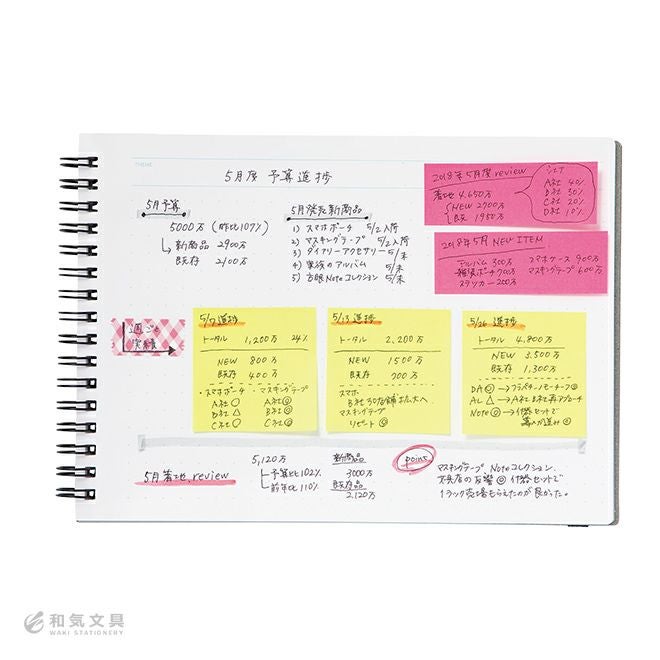 THEME
5月度 予算進捗
5月予算
5000万 (昨比107%)
新商品 2900万
既存 2100万
5月発売新商品
1) スマホポーチ 5/2入荷
2) マスキングテープ 5/2入荷
3) ダイアリーアクセサリー 5/末
4) 家族のアルバム 5/末
5) 方眼Noteコレクション 5/末
2018年5月度 review
着地 4,650万
NEW 2700万
既存 1950万
シェア
A社 40%
B社 30%
C社 20%
D社 10%
2018年5月 NEW ITEM
アルバム 300万 スマホケース 900万
雑貨ポーチ 700万 マスキングテープ 600万
ステッカー 200万
週ごと
実績
5/7 進捗
トータル 1,200万 24%
NEW 800万
既存 400万
・スマホポーチ ・マスキングテープ
A社○ A社◎
B社△ B社◎
C社○ C社◎
5/13 進捗
トータル 2,200万
NEW 1500万
既存 700万
スマホ
B社 30店舗拡大へ
マスキングテープ
リピート◎
5/26 進捗
トータル 4,800万
NEW 3,500万
既存 1,300万
DA◎→
AL△→A社B社再アプローチ
Note◎→付箋セットで
導入が進み◎
5月着地、review
5,120万
予算比102%
前年比110%
新商品
3000万
既存品
2,120万
point
マスキングテープ、Noteコレクション
文具店の反響◎ 付箋セットで
1ラック売場もらえたのが良かった。
和気文具
WAKI STATIONERY